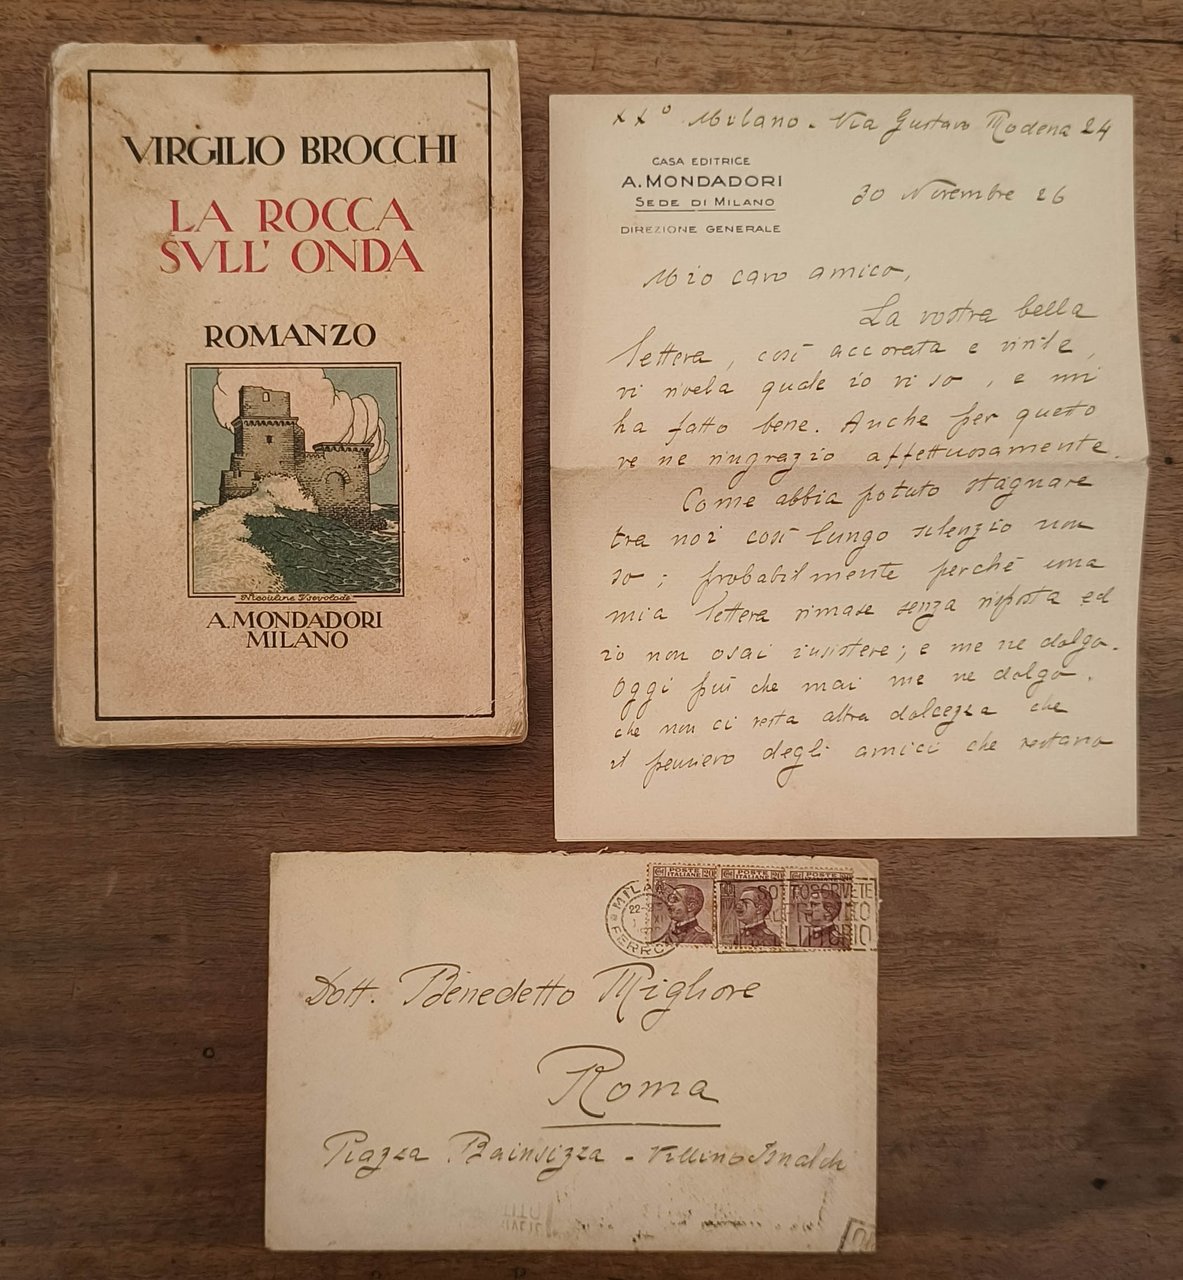 VIRGILIO BROCCHI
LA ROCCA
SVLL' ONDA
ROMANZO
Nicouline Vsevolode
A. MONDADORI
MILANO
XX° Milano - Via Gustavo Modena 24
CASA EDITRICE
A. MONDADORI
SEDE DI MILANO
DIREZIONE GENERALE
30 Novembre 26
Mio caro amico,
La vostra bella
lettera, così accorata e virile,
vi rivela quale io vi so, e mi
ha fatto bene. Anche per questo
ve ne ringrazio affettuosamente.
Come abbia potuto stagnare
tra noi così lungo silenzio non
so; probabilmente perché una
mia lettera rimase senza risposta ed
io non osai insistere; e me ne dolgo.
Oggi più che mai me ne dolgo.
che non ci resta altra dolcezza che
il pensiero degli amici che restano
POSTE ITALIANE POSTE ITALIANE POSTE ITALIANE
MILANO
22-
FERROVIA
SOTTOSCRIVETE
LITTORIO
Dott. Benedetto Migliore
Roma
Piazza Bainsizza - Villino